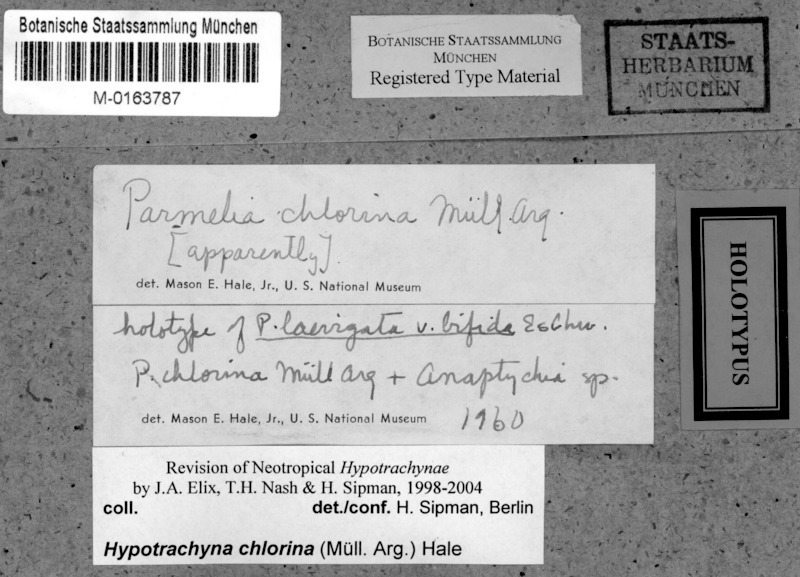 Botanische Staatssammlung München
M-0163787
BOTANISCHE STAATSSAMMLUNG
MÜNCHEN
Registered Type Material
STAATS-
HERBARIUM
MÜNCHEN
Parmelia chlorina Müll. Arg.
[apparently].
det. Mason E. Hale, Jr., U. S. National Museum
HOLOTYPUS
holotype of P. laevigata v. bifida Eschw.
P. chlorina Müll Arg + Anaptychia sp.
det. Mason E. Hale, Jr., U. S. National Museum 1960
Revision of Neotropical Hypotrachynae
by J.A. Elix, T.H. Nash & H. Sipman, 1998-2004
coll. det./conf. H. Sipman, Berlin
Hypotrachyna chlorina (Müll. Arg.) Hale